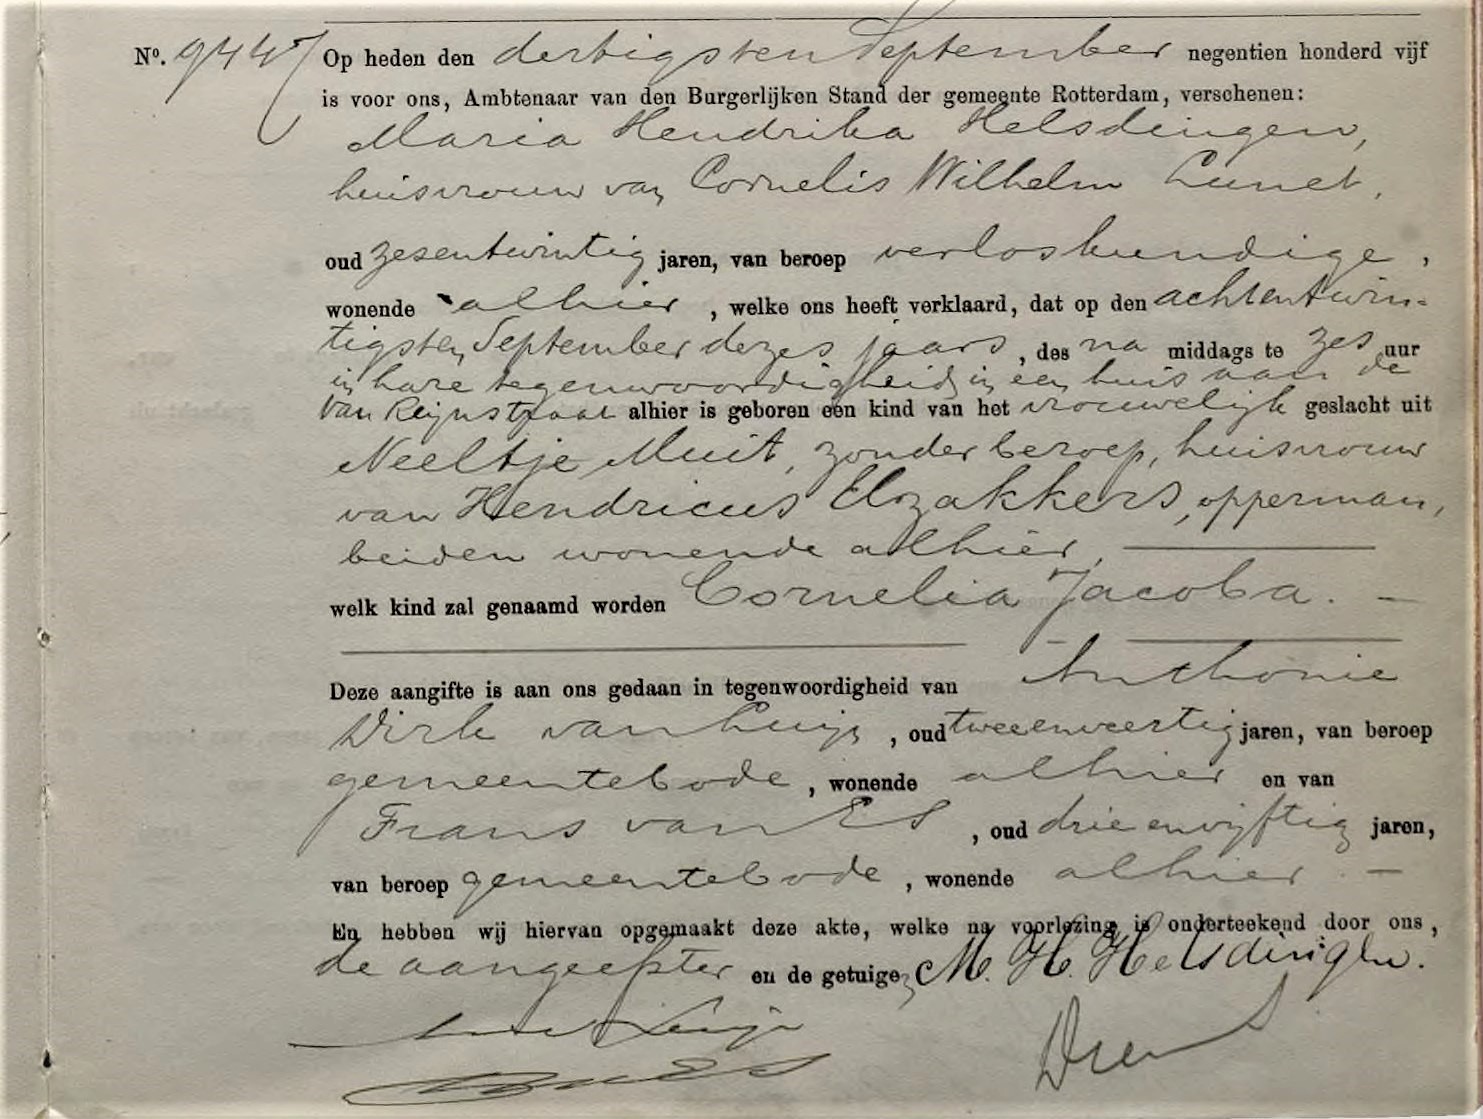 No. 9447 Op heden den dertigsten September negentien honderd vijf
is voor ons, Ambtenaar van den Burgerlijken Stand der gemeente Rotterdam, verschenen:
Maria Hendrika Helsdingen,
huisvrouw van Cornelis Wilhelm Lunet,
oud zesentwintig jaren, van beroep verloskundige,
wonende alhier, welke ons heeft verklaard, dat op den achtentwin=
tigsten September dezes jaars, des na middags te zes uur
in hare tegenwoordigheid in een huis aan de
van Reijnstraat alhier is geboren een kind van het vrouwelijk geslacht uit
Neeltje Muit, zonder beroep, huisvrouw
van Hendricus Elzakkers, opperman,
beiden wonende alhier,
welk kind zal genaamd worden Cornelia Jacoba. —
Deze aangifte is aan ons gedaan in tegenwoordigheid van Anthonie
Dirk van Luijs, oud tweeenveertig jaren, van beroep
gemeentebode, wonende alhier en van
Frans van Es, oud drieenvijftig jaren,
van beroep gemeentebode, wonende alhier. —
En hebben wij hiervan opgemaakt deze akte, welke na voorlezing is onderteekend door ons,
de aangeefster en de getuigen M. H. Helsdingen.